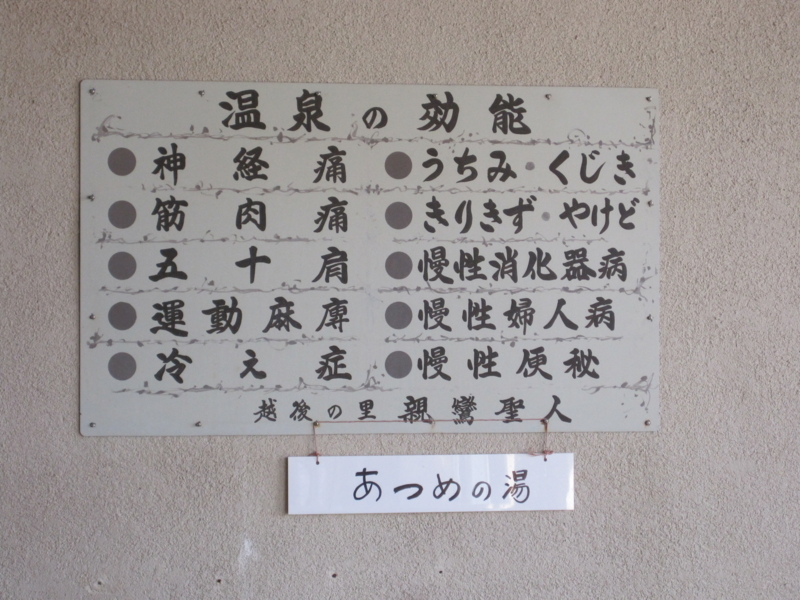 温泉の効能
●神経痛
●筋肉痛
●五十肩
●運動麻痺
●冷え症
●うちみ・くじき
●きりきず・やけど
●慢性消化器病
●慢性婦人病
●慢性便秘
越後の里 親鸞聖人
あつめの湯